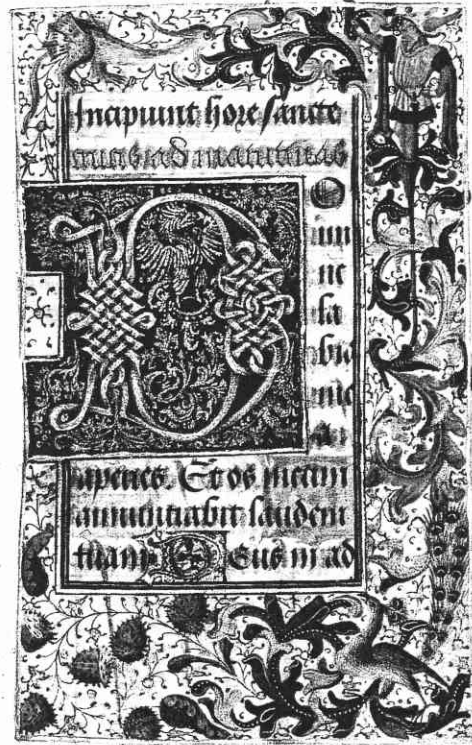 Incipiunt hore sancte
crucis ad matutinas
D O
mi
ne
la
bia
me
a
aperies. Et os meum
annuntiabit laudem
tuam Deus in ad